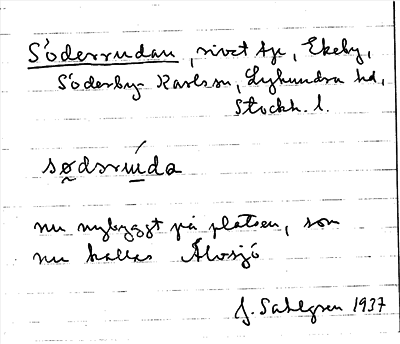 Söderrudan, rivet tp, Ekeby,
Söderby-Karlsson, Lyhundra hd,
Stockh. l.
sødsrúda
nu nybyggt på platsen, som
nu kallas Älvsjö
J. Sahlgren 1937